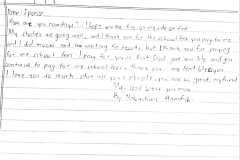 Dear: Sponsor
How are you nowadays? I hope you are fine on my side am fine
My studies are going well, and I thank you for the school fees you pay for me
and I did mocks and am waiting for results but I thank you for paying
for me school fees I pray for you so that God give you life and you
continue to pay for me school fees thank you my God bless you
I love you so much plus all your people, you are so great my friend
May God bless you more
By Nabukenya Hanifah